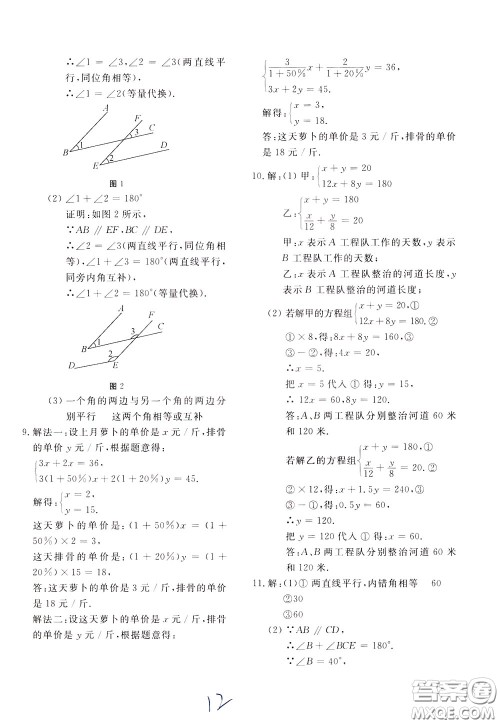 ∴∠1 = ∠2 = ∠3(两直线平
行,同位角相等),
∴∠1 = ∠2(等量代换).
A
F
C
1
3
B
D
2
E
图 1
(2) ∠1 + ∠2 = 180°
证明:如图 2 所示,
∵AB ∥ EF, BC ∥ DE,
∴∠2 = ∠3(两直线平行,同位角相
等),∠1 + ∠3 = 180°(两直线平行,
同旁内角互补),
∴∠1 + ∠2 = 180°(等量代换).
A
F
C
1
3
B
2
D
E
图 2
(3) 一个角的两边与另一个角的两边分
别平行 这两个角相等或互补
9. 解法一:设上月萝卜的单价是 x 元/斤,排骨
的单价 y 元/斤,根据题意得:
{3x + 2y = 36,
3(1 + 50%)x + 2(1 + 20%)y = 45.
解得:{x = 2,
y = 15.
这天萝卜的单价是:(1 + 50%)x = (1 +
50%) × 2 = 3,
这天排骨的单价是:(1 + 20%)y = (1 +
20%) × 15 = 18,
答:这天萝卜的单价是 3 元/斤,排骨的单价
是 18 元/斤.
解法二:设这天萝卜的单价是 x 元/斤,排骨
的单价是 y 元/斤,根据题意得:
{3/(1 + 50%) x + 2/(1 + 20%) y = 36,
3x + 2y = 45.
解得:{x = 3,
y = 18.
答:这天萝卜的单价是 3 元/斤,排骨的单价
是 18 元/斤.
10. 解:(1) 甲:{x + y = 20
12x + 8y = 180
乙:{x + y = 180
x/12 + y/8 = 20
甲:x 表示 A 工程队工作的天数,y 表示
B 工程队工作的天数;
乙:x 表示 A 工程队整治的河道长度,y
表示 B 工程队整治的河道长度;
(2) 若解甲的方程组{x + y = 20,①
12x + 8y = 180.②
① × 8,得:8x + 8y = 160,③
③ − ②,得:4x = 20,
∴x = 5.
把 x = 5 代入 ① 得:y = 15,
∴ 12x = 60,8y = 120.
答:A,B 两工程队分别整治河道 60 米
和 120 米.
若解乙的方程组{x + y = 180,①
x/12 + y/8 = 20.②
② × 12,得:x + 1.5y = 240,③
③ − ①,得:0.5y = 60,
∴y = 120.
把 y = 120 代入 ① 得:x = 60.
答:A、B 两工程队分别整治河道 60 米
和 120 米.
11. 解:(1)① 两直线平行,内错角相等 60
②30
③60
(2) ∵AB ∥ CD,
∴∠B + ∠BCE = 180°.
∵∠B = 40°,
12
答案圈
MXQE.COM